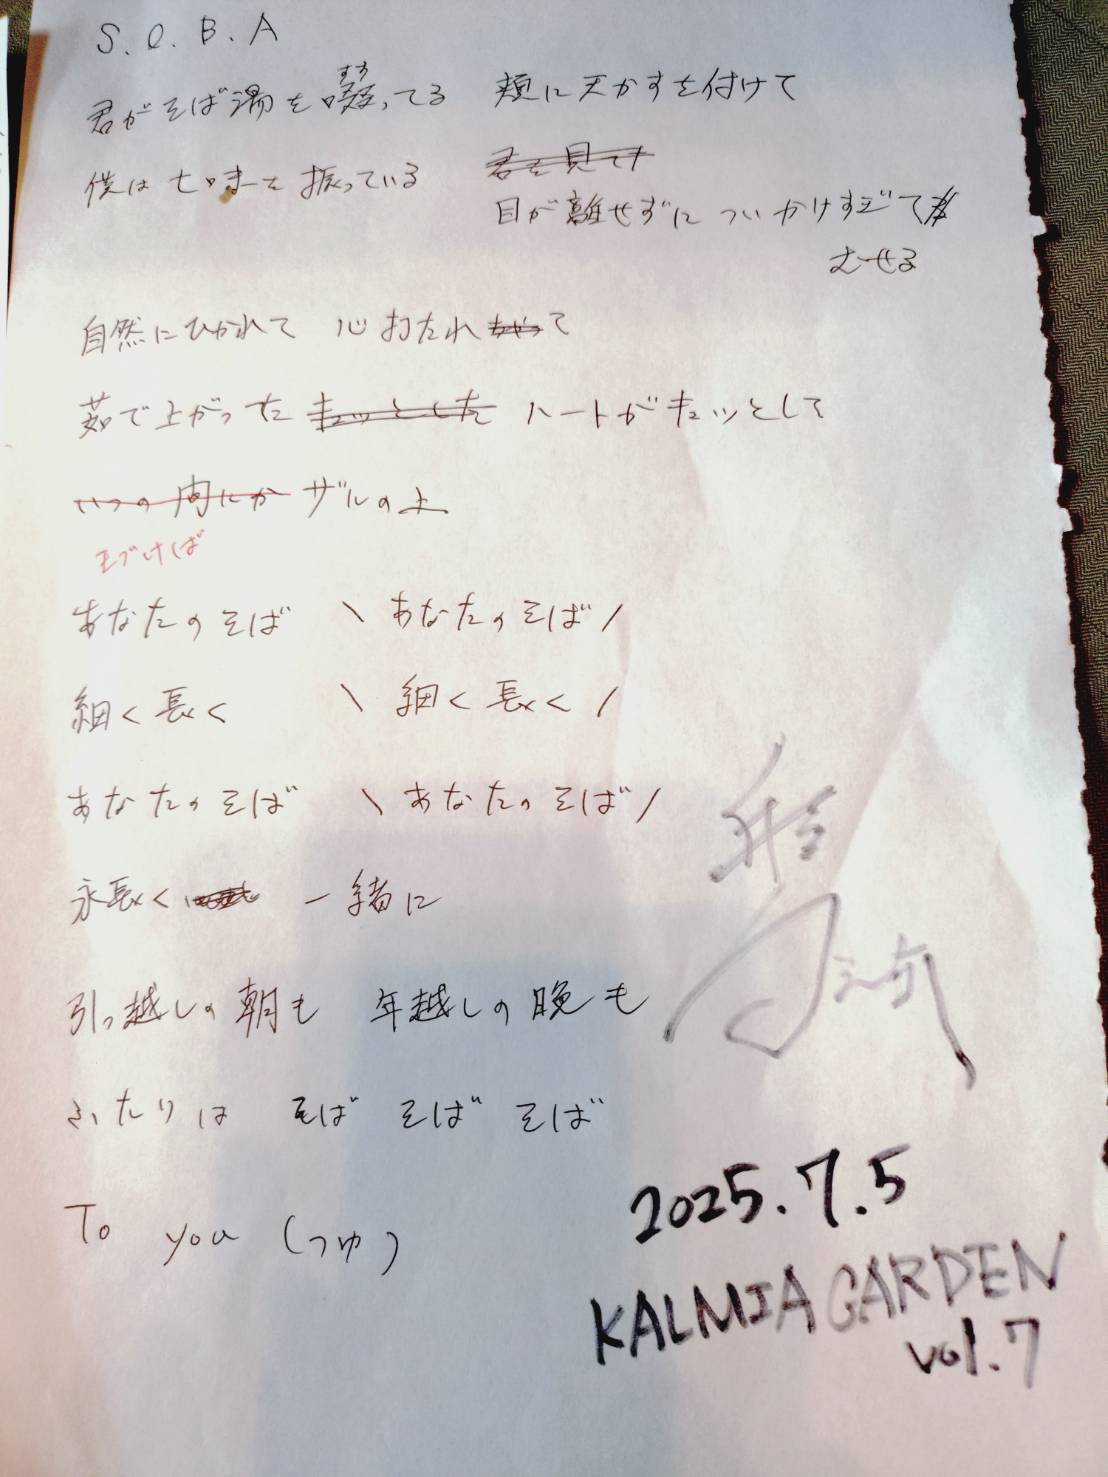 S.O.B.A
君がそば湯を啜ってる 頬に天かすを付けて
すす
僕は七味を振っている 君を見てナ
目が離せずに ついかけすぎて
むせる
自然にひかれて 心打たれちゃって
茹で上がった キュッとした ハートがキュッとして
いつの内にか ザルの上
まづけば
あなたのそば \ あなたのそば /
細く長く \ 細く長く /
あなたのそば \ あなたのそば /
永長く 一緒に
引っ越しの朝も 年越しの晩も
ふたりは そば そば そば
To you (つゆ)
2025.7.5
KALMIA GARDEN
vol.7